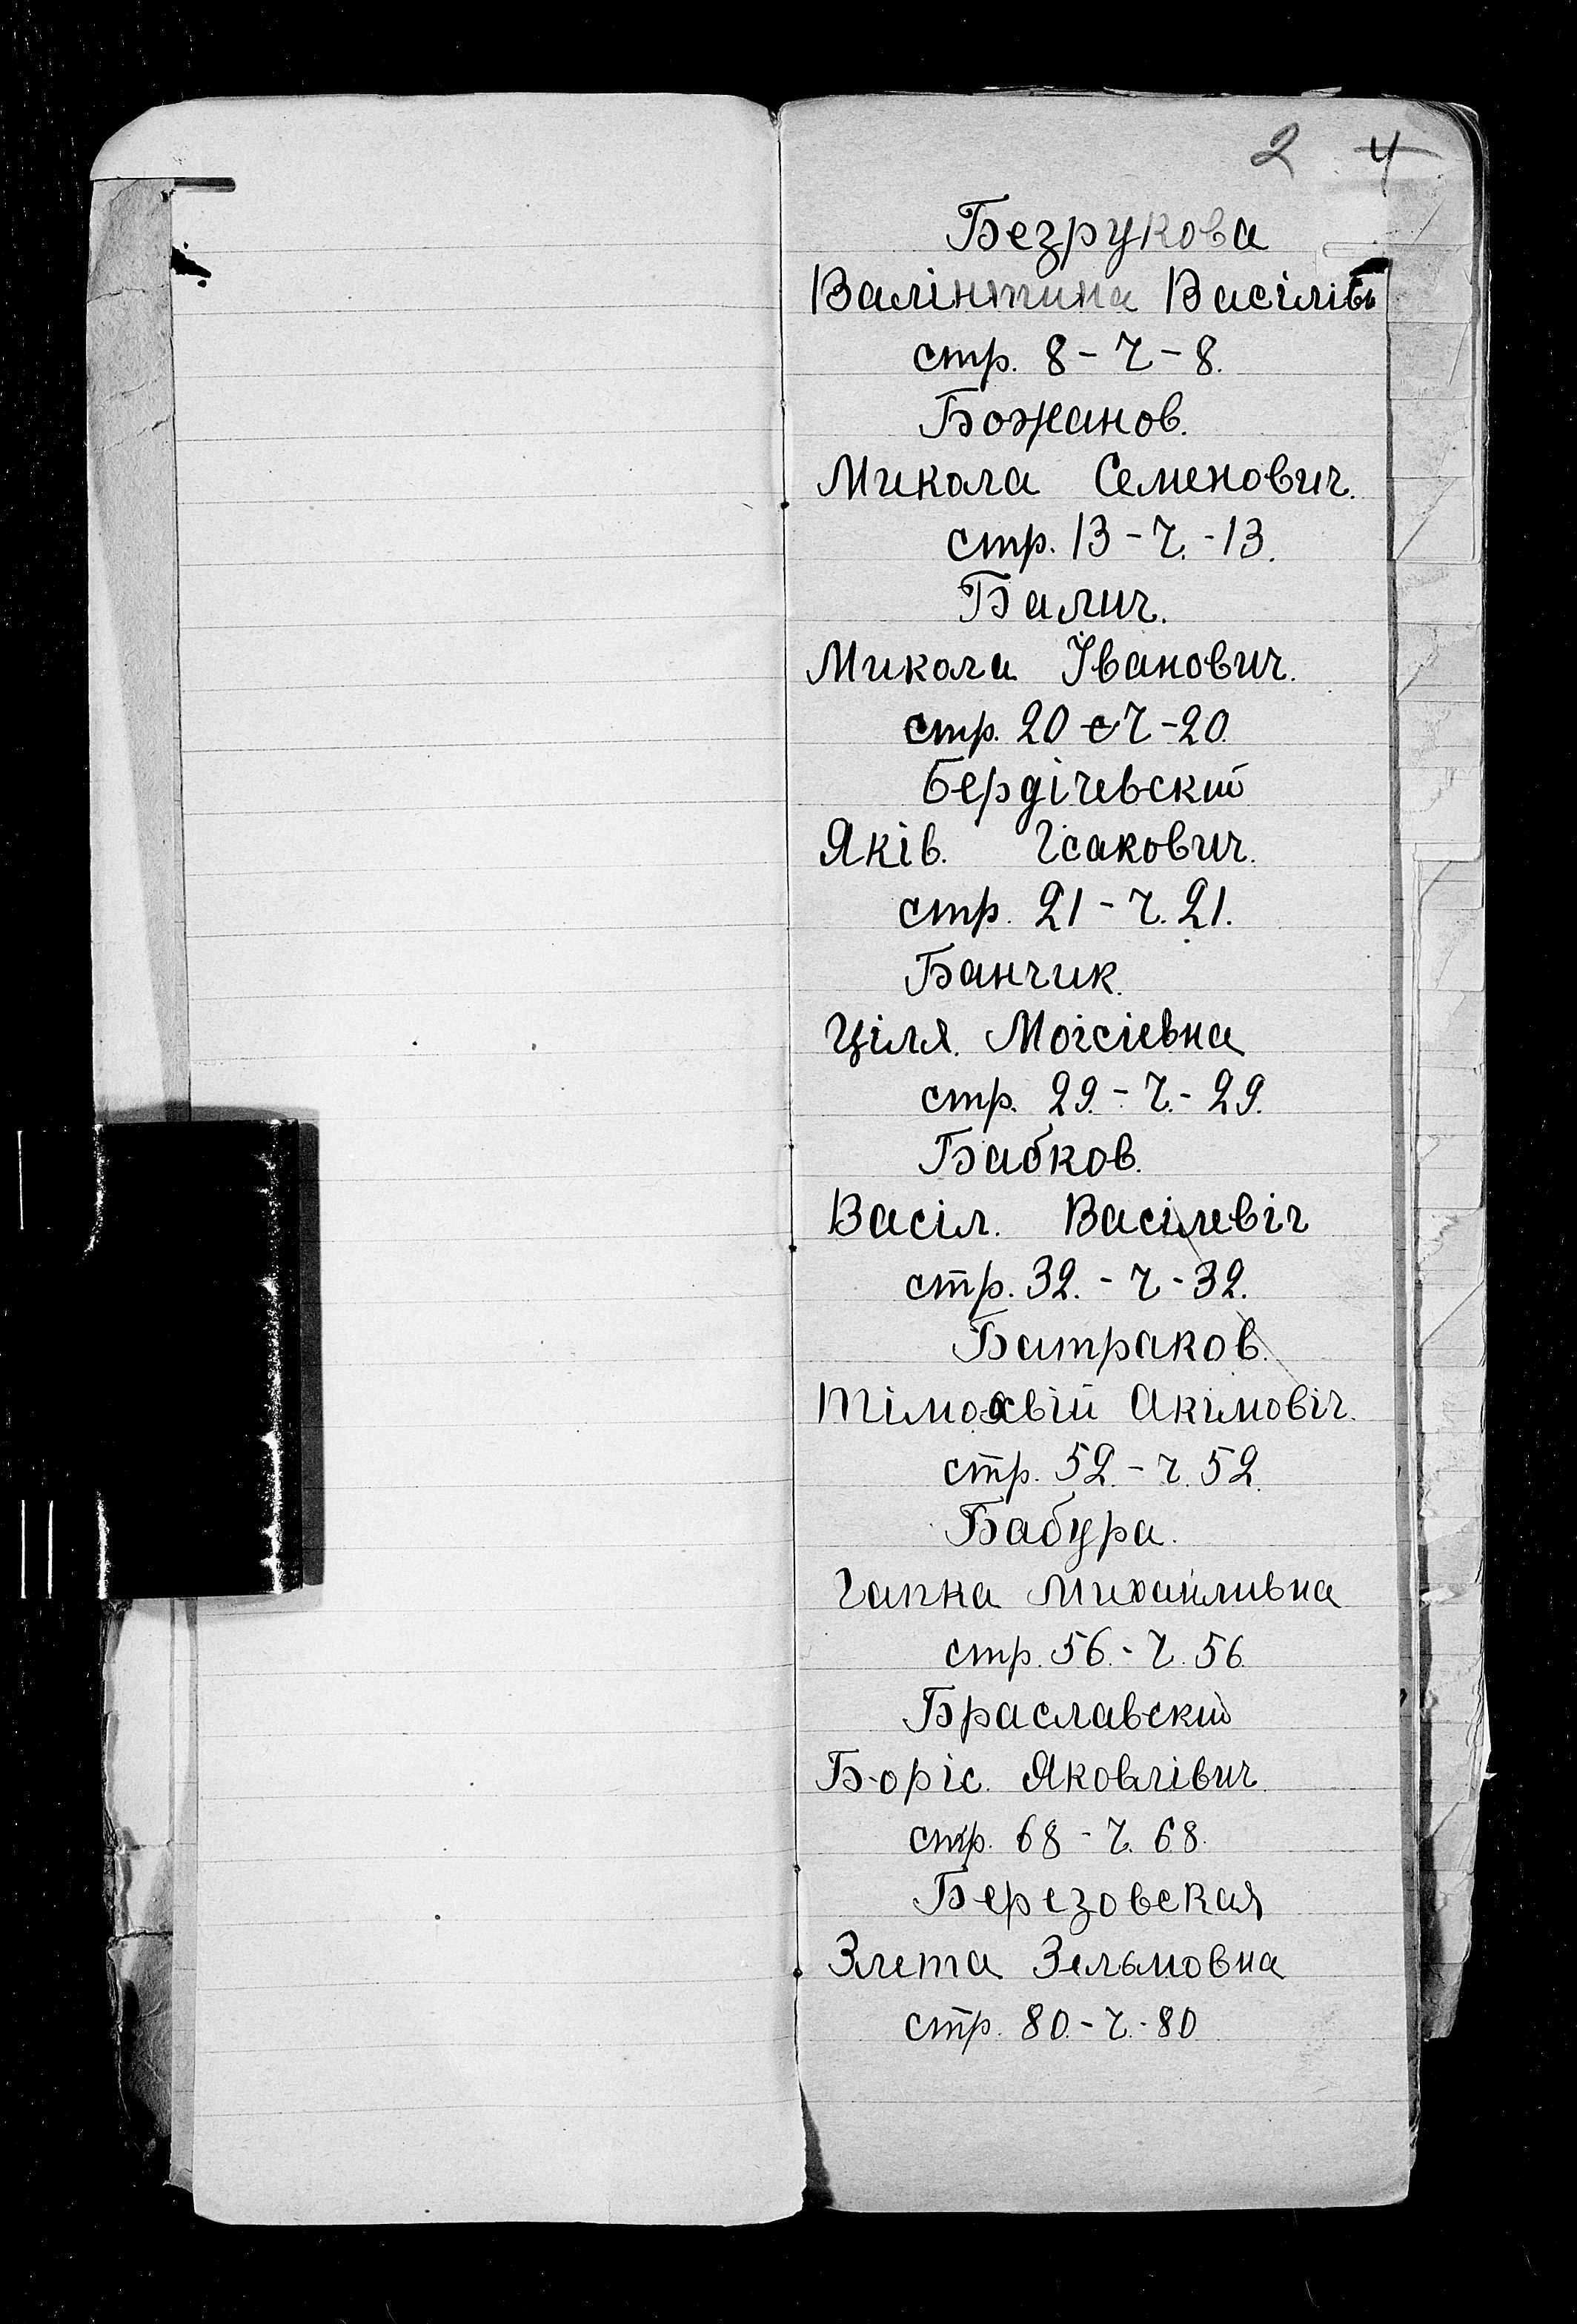 2 4
Безрукова
Валінтина Васілівн
стр. 8 - ч - 8.
Божанов.
Микола Семенович.
стр. 13 - ч. - 13.
Балич.
Микола Іванович.
стр. 20 - ч - 20.
Бердічевский
Яків. Ісакович.
стр. 21 - ч. 21.
Банчик.
Ціля. Моісіевна
стр. 29. - ч. - 29.
Бабков.
Васіл. Васілевіч
стр. 32. - ч - 32.
Батраков.
Тімохвій Акімовіч.
стр. 52. - ч. 52.
Бабура.
Гапка Михайливна
стр. 56. - ч. 56.
Браславский
Боріс. Яковлівич.
стр. 68 - ч. 68.
Березовская
Злета Зельмовна
стр. 80. - ч. - 80